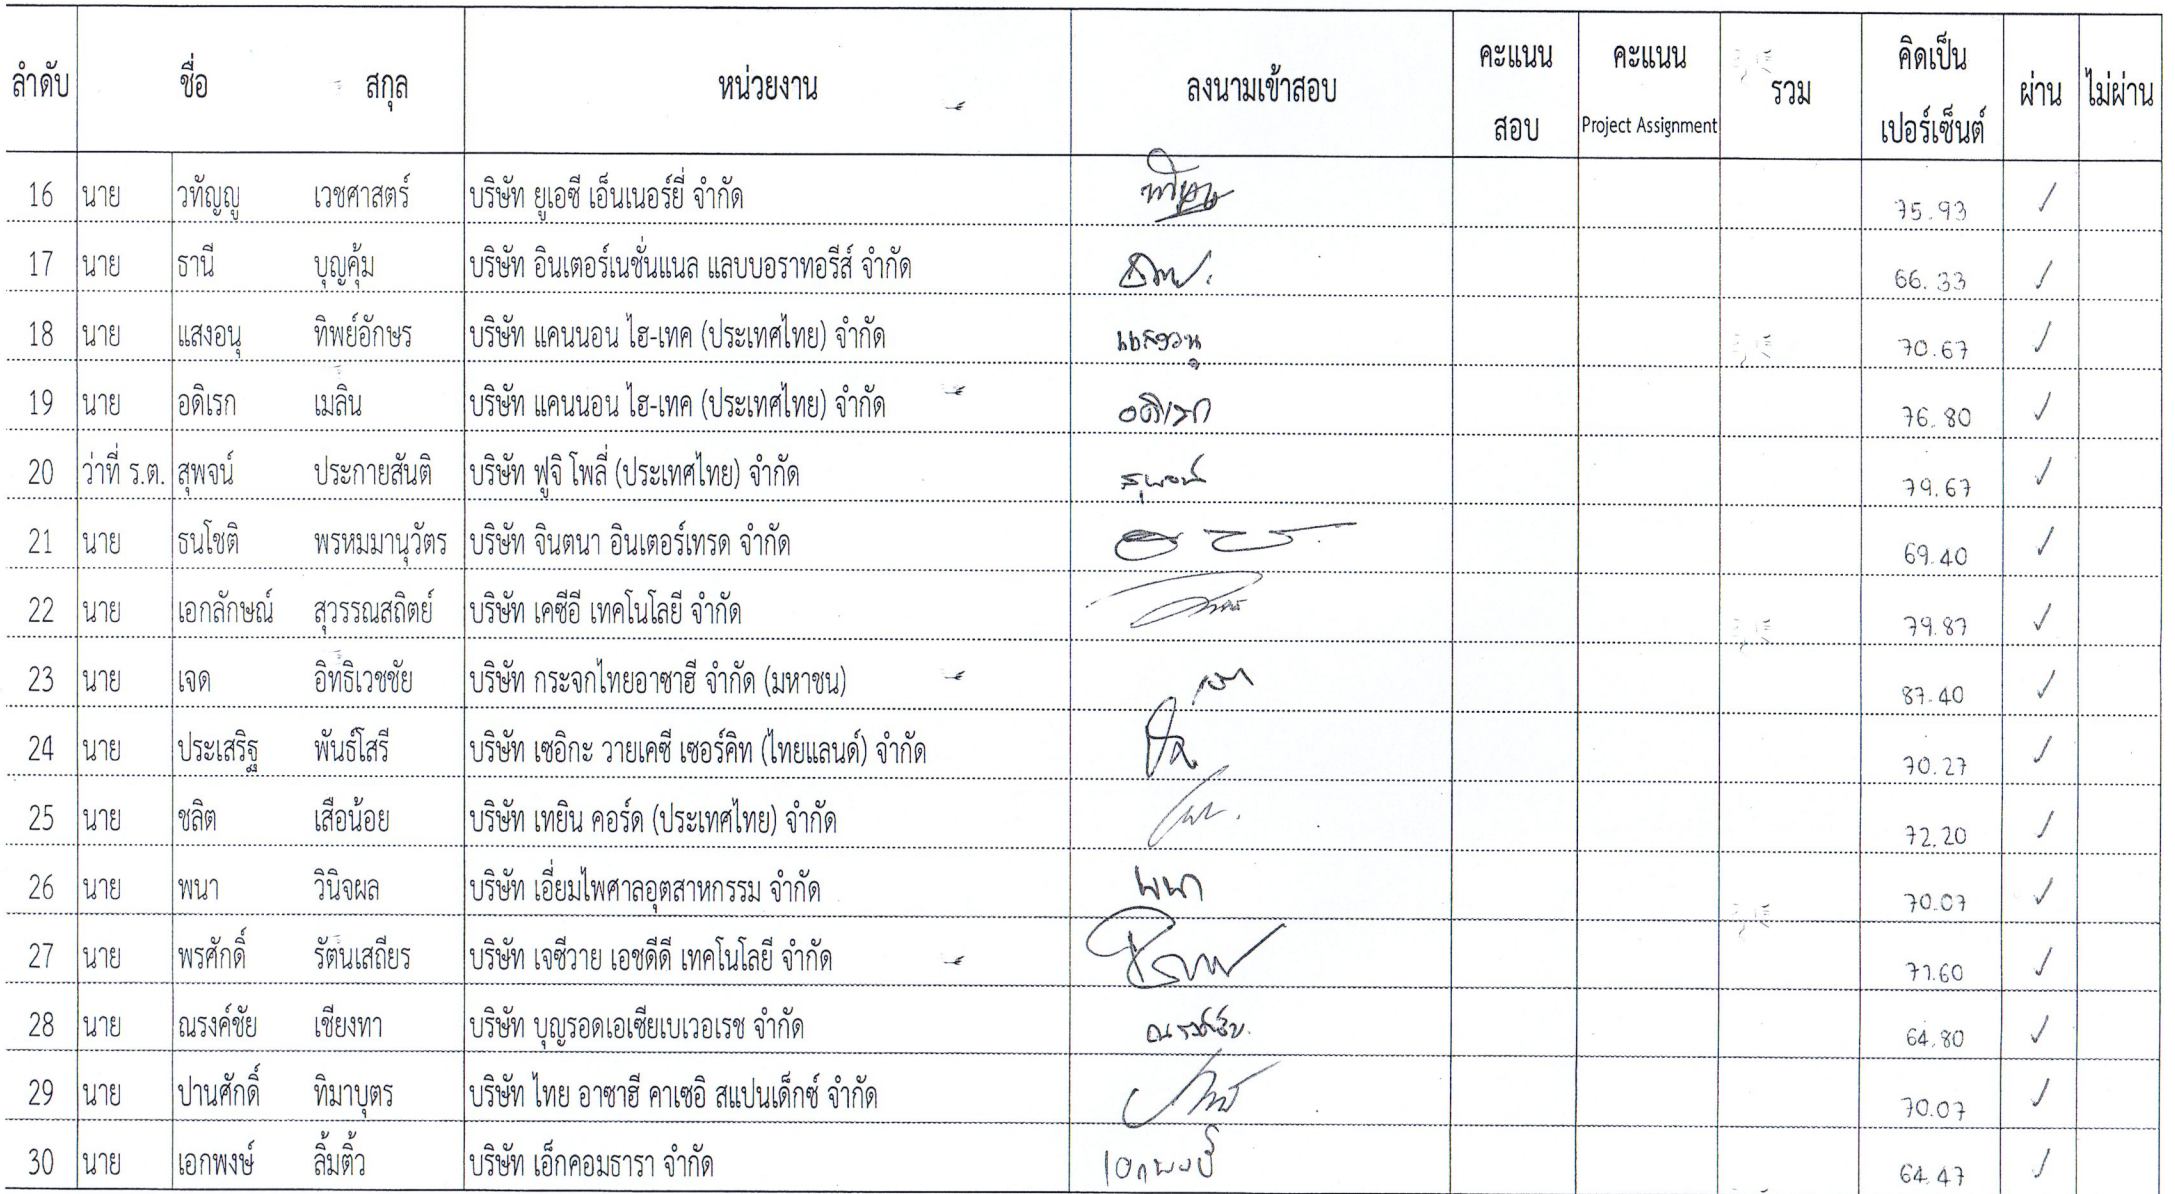 ลำดับ ชื่อ สกุล หน่วยงาน ลงนามเข้าสอบ คะแนน สอบ คะแนน Project Assignment รวม คิดเป็น เปอร์เซ็นต์ ผ่าน ไม่ผ่าน
16 นาย วทัญญู เวชศาสตร์ บริษัท ยูเอซี เอ็นเนอร์ยี่ จำกัด 75.93 ✓
17 นาย ธานี บุญคุ้ม บริษัท อินเตอร์เนชั่นแนล แลบบอราทอรีส์ จำกัด 66.33 ✓
18 นาย แสงอนุ ทิพย์อักษร บริษัท แคนนอน ไฮ-เทค (ประเทศไทย) จำกัด แสงอนุ 70.67 ✓
19 นาย อดิเรก เมลิน บริษัท แคนนอน ไฮ-เทค (ประเทศไทย) จำกัด อดิเรก 76.80 ✓
20 ว่าที่ ร.ต. สุพจน์ ประกายสันติ บริษัท ฟูจิ โพลี่ (ประเทศไทย) จำกัด สุพจน์ 79.67 ✓
21 นาย ธนโชติ พรหมมานุวัตร บริษัท จินตนา อินเตอร์เทรด จำกัด 69.40 ✓
22 นาย เอกลักษณ์ สุวรรณสถิตย์ บริษัท เคซีอี เทคโนโลยี จำกัด 79.87 ✓
23 นาย เจด อิทธิเวชชัย บริษัท กระจกไทยอาซาฮี จำกัด (มหาชน) 87.40 ✓
24 นาย ประเสริฐ พันธ์โสรี บริษัท เซอิกะ วายเคซี เซอร์คิท (ไทยแลนด์) จำกัด 70.27 ✓
25 นาย ชลิต เสือน้อย บริษัท เทยิน คอร์ด (ประเทศไทย) จำกัด 72.20 ✓
26 นาย พนา วินิจผล บริษัท เอี่ยมไพศาลอุตสาหกรรม จำกัด พนา 70.07 ✓
27 นาย พรศักดิ์ รัตนเสถียร บริษัท เจซีวาย เอชดีดี เทคโนโลยี จำกัด 77.60 ✓
28 นาย ณรงค์ชัย เชียงทา บริษัท บุญรอดเอเซียเบเวอเรช จำกัด ณรงค์ชัย 64.80 ✓
29 นาย ปานศักดิ์ ทิมาบุตร บริษัท ไทย อาซาฮี คาเซอิ สแปนเด็กซ์ จำกัด 70.07 ✓
30 นาย เอกพงษ์ ลิ้มติ้ว บริษัท เอ็กคอมธารา จำกัด เอกพงษ์ 64.47 ✓